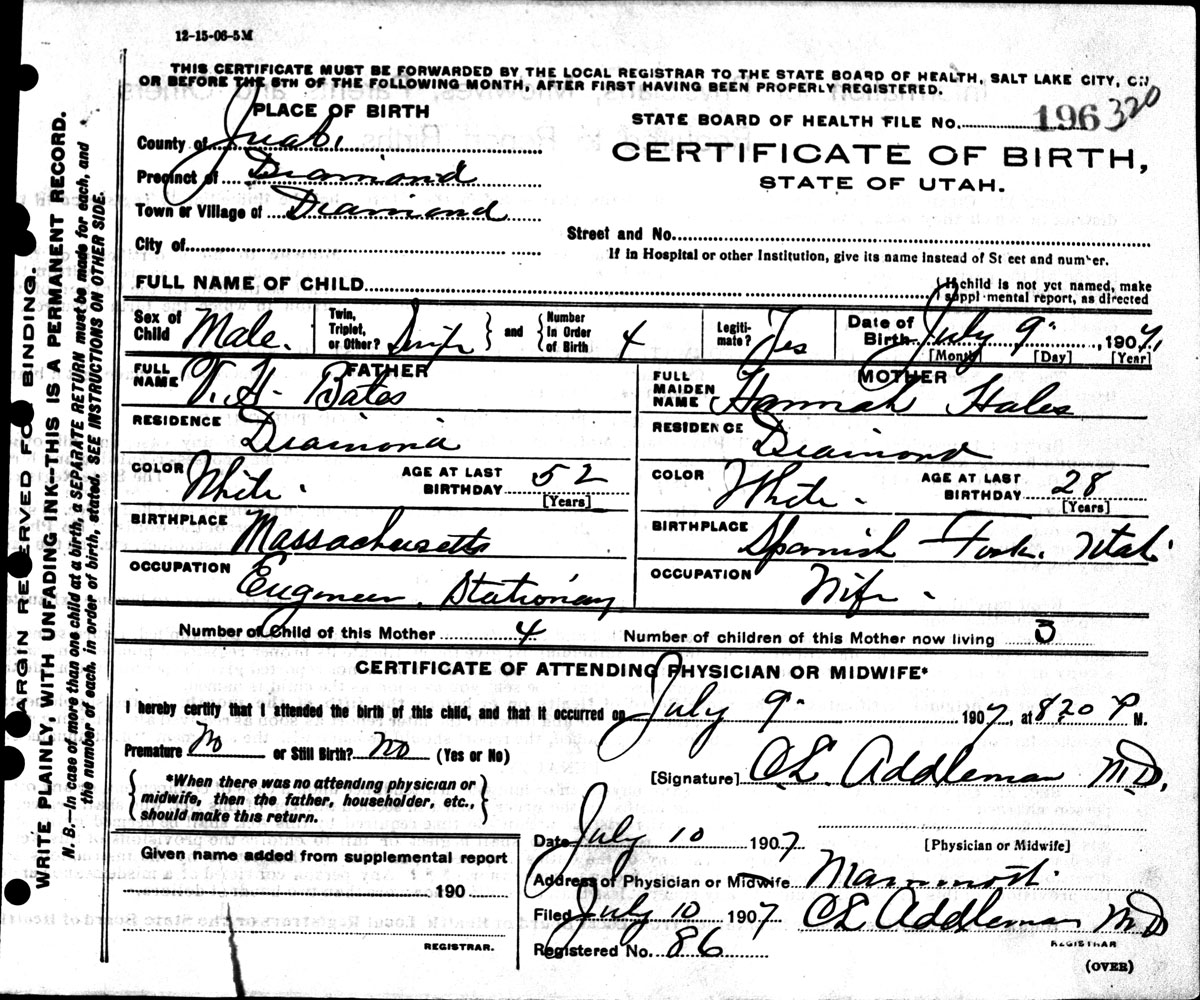 12-15-06-5M
THIS CERTIFICATE MUST BE FORWARDED BY THE LOCAL REGISTRAR TO THE STATE BOARD OF HEALTH, SALT LAKE CITY,
OR BEFORE THE 5TH OF THE FOLLOWING MONTH, AFTER FIRST HAVING BEEN PROPERLY REGISTERED.
PLACE OF BIRTH
STATE BOARD OF HEALTH FILE NO. 196 320
County of Juab.
CERTIFICATE OF BIRTH,
Precinct of Diamond
STATE OF UTAH.
Town or Village of Diamond
Street and No.
City of
If in Hospital or other Institution, give its name instead of St eet and number.
FULL NAME OF CHILD
If child is not yet named, make
suppl mental report, as directed
Sex of Child Male. Twin, Triplet, or Other? and Number In Order of Birth 4 Legiti- mate? Yes Date of Birth July 9 1907,
[Month] [Day] [Year]
FATHER
FULL NAME V. H. Bates
RESIDENCE Diamond
COLOR White. AGE AT LAST BIRTHDAY 52
[Years]
BIRTHPLACE Massachusetts
OCCUPATION Engineer. Stationary
MOTHER
FULL MAIDEN NAME Hannah Hales
RESIDENCE Diamond
COLOR White. AGE AT LAST BIRTHDAY 28
[Years]
BIRTHPLACE Spanish Fork. Utah.
OCCUPATION Wife.
Number of Child of this Mother 4 Number of children of this Mother now living 3
CERTIFICATE OF ATTENDING PHYSICIAN OR MIDWIFE*
I hereby certify that I attended the birth of this child, and that it occurred on July 9 1907, at 8.20 P M.
Premature No or Still Birth? No (Yes or No)
*When there was no attending physician or
midwife, then the father, householder, etc.,
should make this return.
[Signature] CE Addleman M.D.
[Physician or Midwife]
Date July 10 1907
Given name added from supplemental report
190
REGISTRAR.
Address of Physician or Midwife Mammoth.
Filed July 10 1907 CE Addleman MD
REGISTRAR
Registered No. 86
(OVER)
MARGIN RESERVED FOR BINDING.
WRITE PLAINLY, WITH UNFADING INK—THIS IS A PERMANENT RECORD.
N. B.—In case of more than one child at a birth, a SEPARATE RETURN must be made for each, and
the number of each, in order of birth, stated. SEE INSTRUCTIONS ON OTHER SIDE.